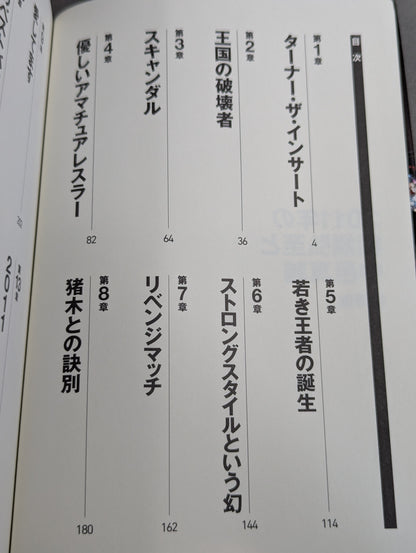 目次
第1章
ターナー・ザ・インサート
4
第2章
王国の破壊者
36
第3章
スキャンダル
64
第4章
優しいアマチュアレスラー
82
第5章
若き王者の誕生
114
第6章
ストロングスタイルという幻
144
第7章
リベンジマッチ
162
第8章
猪木との訣別
180
2011